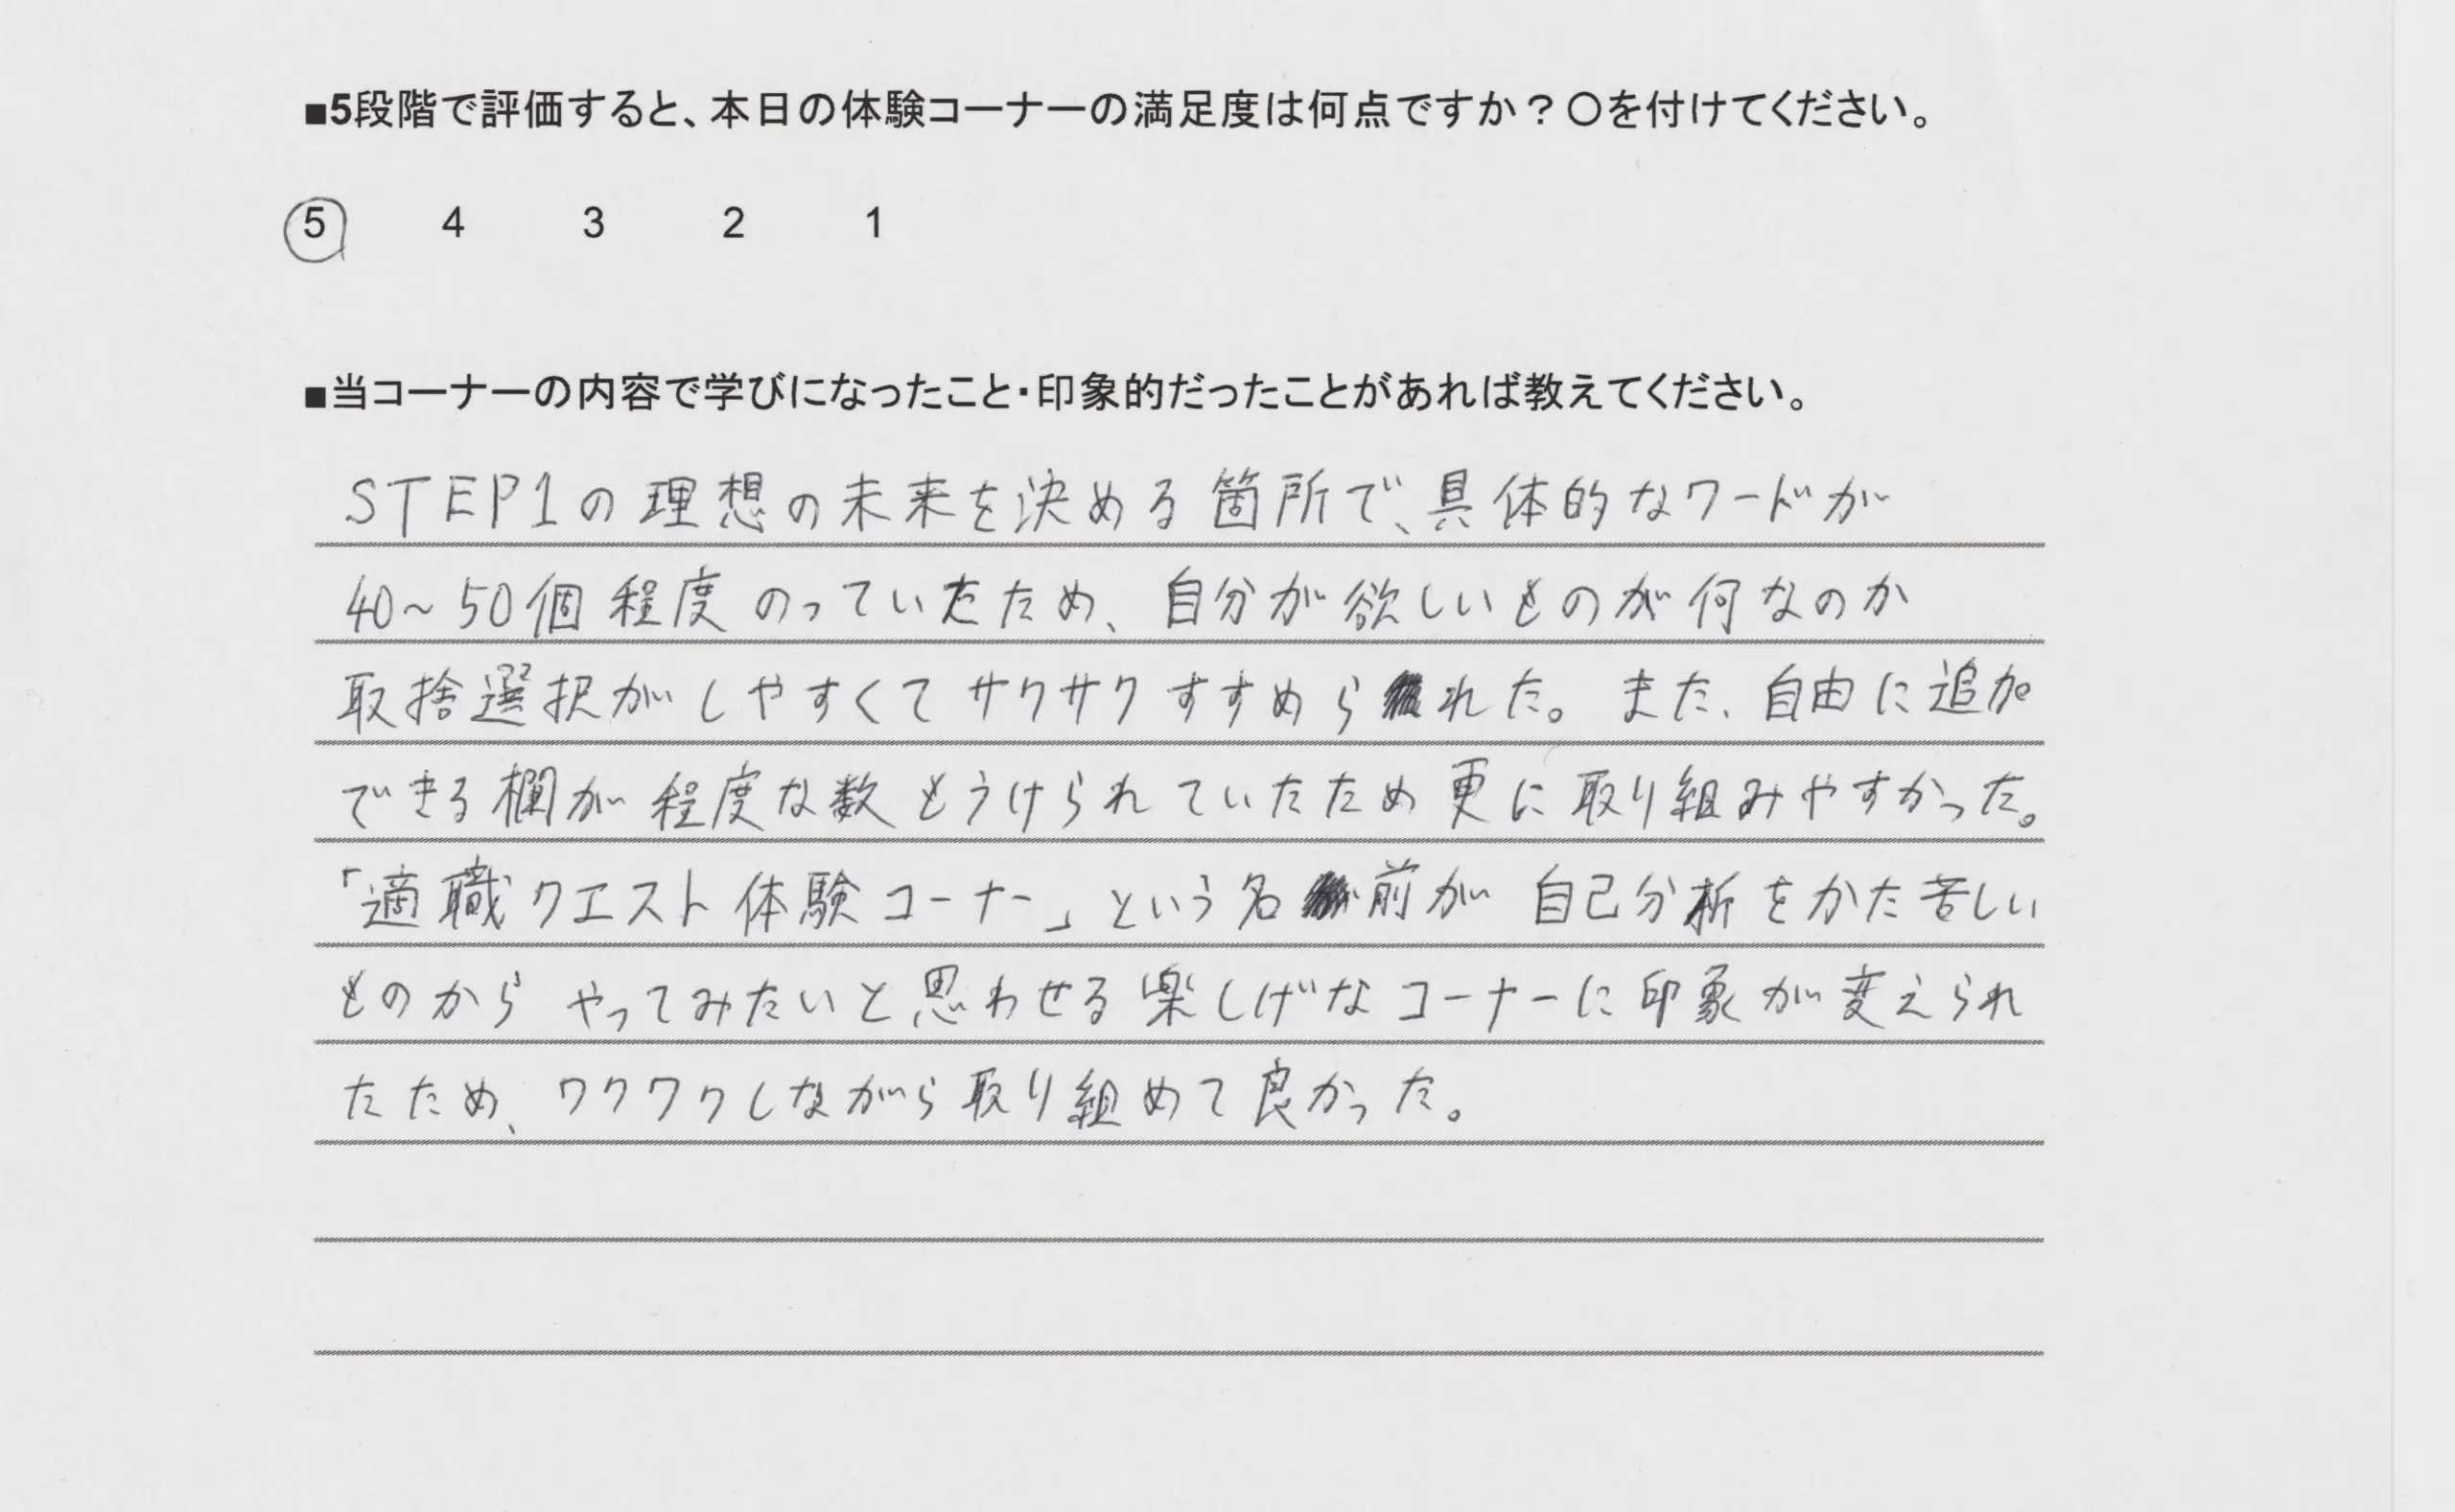 ■5段階で評価すると、本日の体験コーナーの満足度は何点ですか？〇を付けてください。
5 4 3 2 1
■当コーナーの内容で学びになったこと・印象的だったことがあれば教えてください。
STEP1の理想の未来を決める箇所で、具体的なワードが
40～50個程度のっていたため、自分が欲しいものが何なのか
取捨選択がしやすくてサクサクすすめられた。また、自由に追加
できる欄が程度な数もうけられていたため更に取り組みやすかった。
「適職クエスト体験コーナー」という名前が自己分析をかた苦しい
ものからやってみたいと思わせる楽しげなコーナーに印象が変えられ
たため、ワクワクしながら取り組めて良かった。